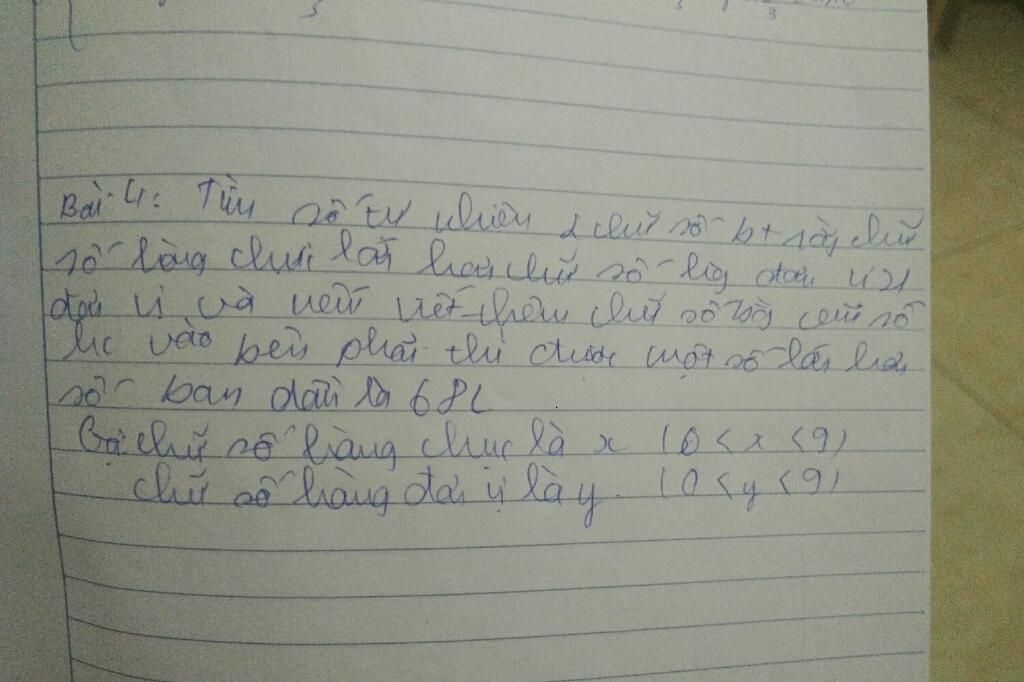 Bài 4: Tìm số tự nhiên 2 chữ số bt rằng chữ
số hàng chục lớn hơn chữ số hàg đơn vị 2
đơn vị và nếu viết thêm chữ số bằng chữ số
hc vào bên phải thì được một số lớn hơn
số ban đầu là 682
Gọi chữ số hàng chục là x (0 < x < 9)
chữ số hàng đơn vị là y. (0 < y < 9)